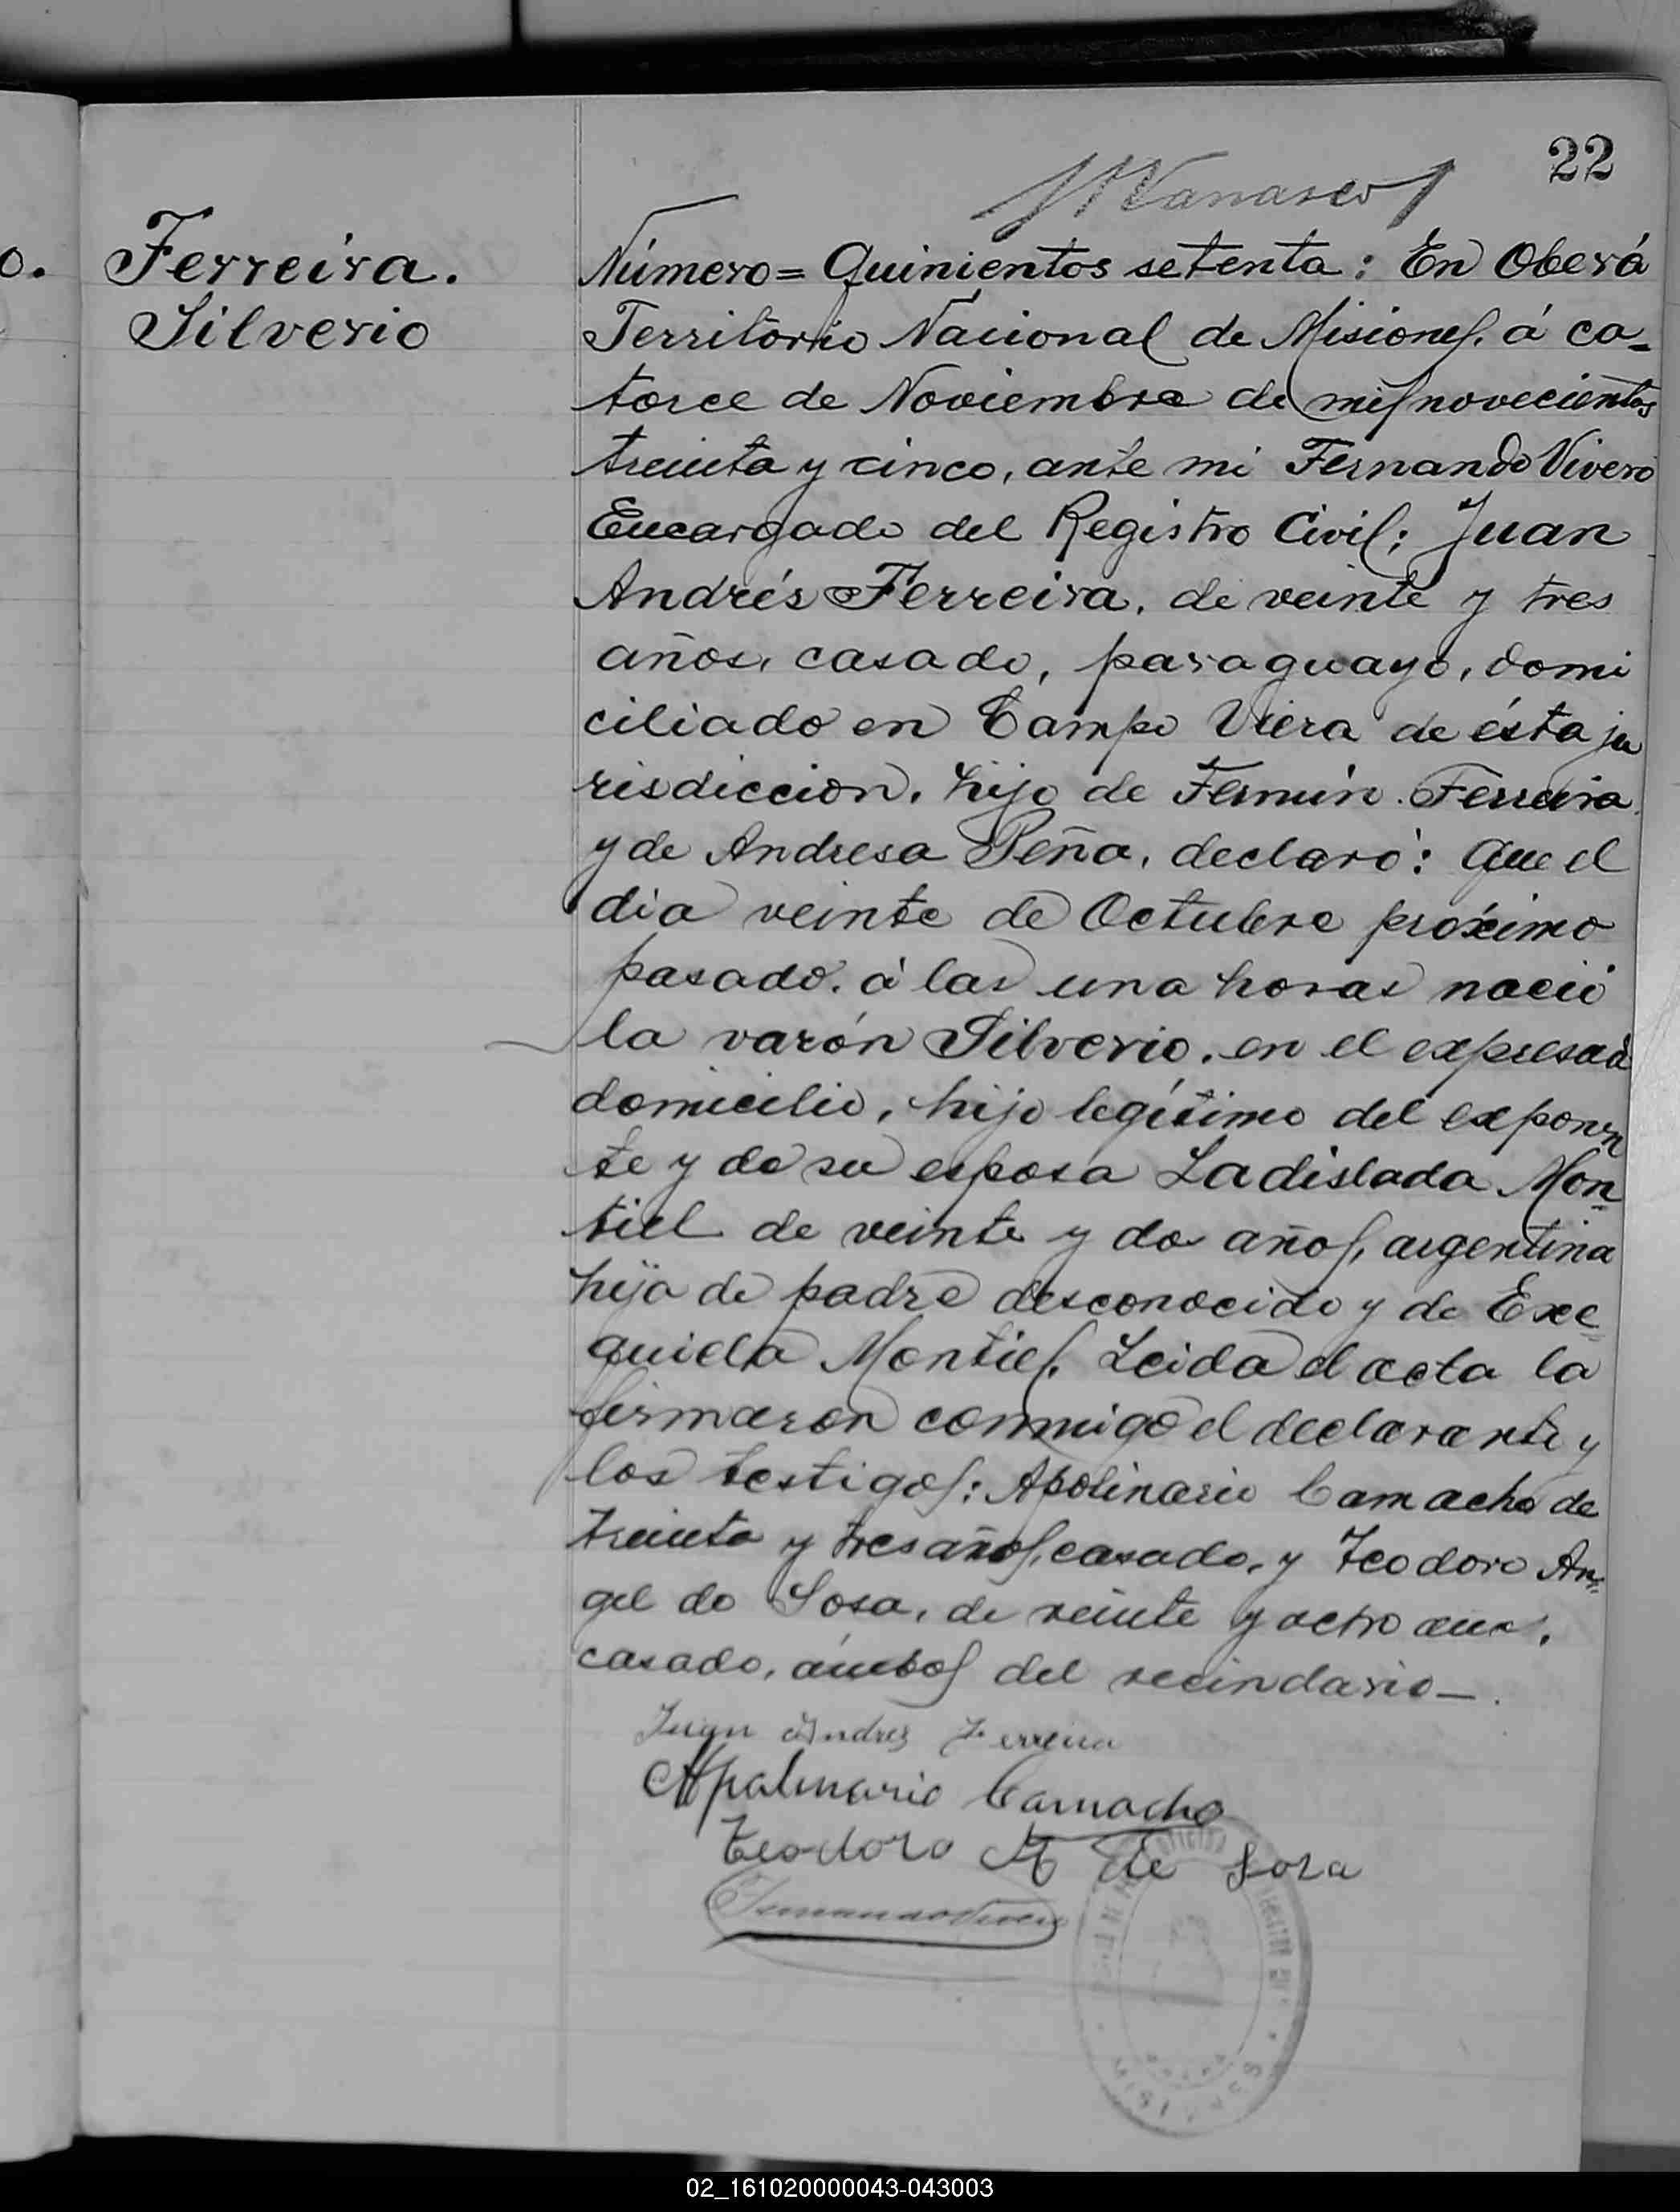 22
Ferreira.
Silverio
o.
Número = Quinientos setenta: En Oberá
Territorio Nacional de Misiones, á ca-
torce de Noviembre de mil novecientos
treinta y cinco, ante mi Fernando Vivero
Encargado del Registro Civil; Juan
Andrés Ferreira, de veinte y tres
años, casado, paraguayo, domi
ciliado en Campo Viera de ésta ju
risdiccion, hijo de Fermín Ferreira
y de Andresa Peña, declaró: Que el
dia veinte de Octubre próximo
pasado, á las una horas nació
la varón Silverio, en el expresad
domicilio, hijo legítimo del exponen
te y de su esposa Ladislada Mon
tiel de veinte y dos años, argentina
hija de padre desconocido y de Exe
quiela Montiel. Leida el acta la
firmaron conmigo el declarante y
los testigos: Apolinario Camacho de
treinta y tres años, casado, y Teodoro An-
gel de Sosa, de veinte y ocho años,
casado, ámbos del vecindario —.
Juan Andres Ferreira
Apolinario Camacho
Teodoro A de Sosa
Fernando Vivero
MISIONES
02_161020000043-043003